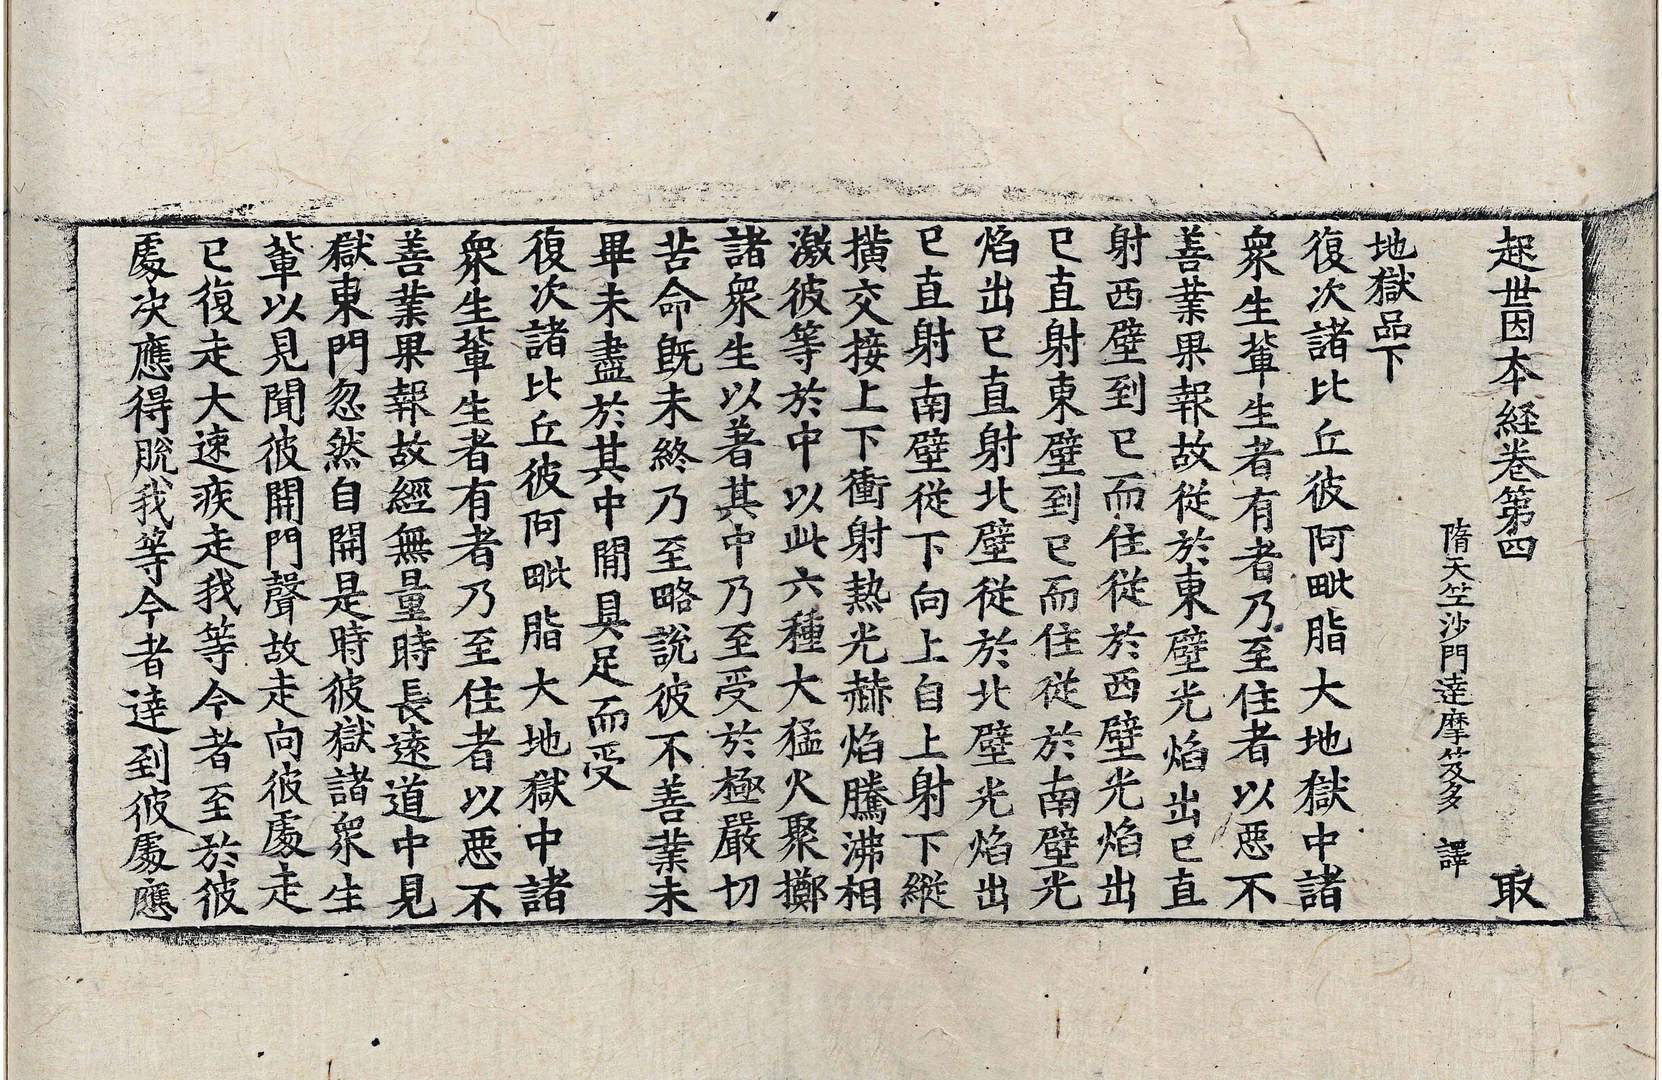 起世因本経卷第四 取
隋天竺沙門達摩笈多 譯
地獄品下
復次諸比丘彼阿毗脂大地獄中諸
衆生軰生者有者乃至住者以惡不
善業果報故從於東壁光焰出已直
射西壁到已而住從於西壁光焰出
已直射東壁到已而住從於南壁光
焰出已直射北壁從於北壁光焰出
已直射南壁從下向上自上射下縱
撗交接上下衝射熱光赫焰騰沸相
激彼等於中以此六種大猛火聚擲
諸衆生以著其中乃至受於極嚴切
苦命旣未終乃至略說彼不善業未
畢未盡於其中閒具足而受
復次諸比丘彼阿毗脂大地獄中諸
衆生軰生者有者乃至住者以惡不
善業果報故經無量時長遠道中見
獄東門忽然自開是時彼獄諸衆生
軰以見聞彼開門聲故走向彼處走
已復走大速疾走我等今者至於彼
處决應得脫我等今者達到彼處應